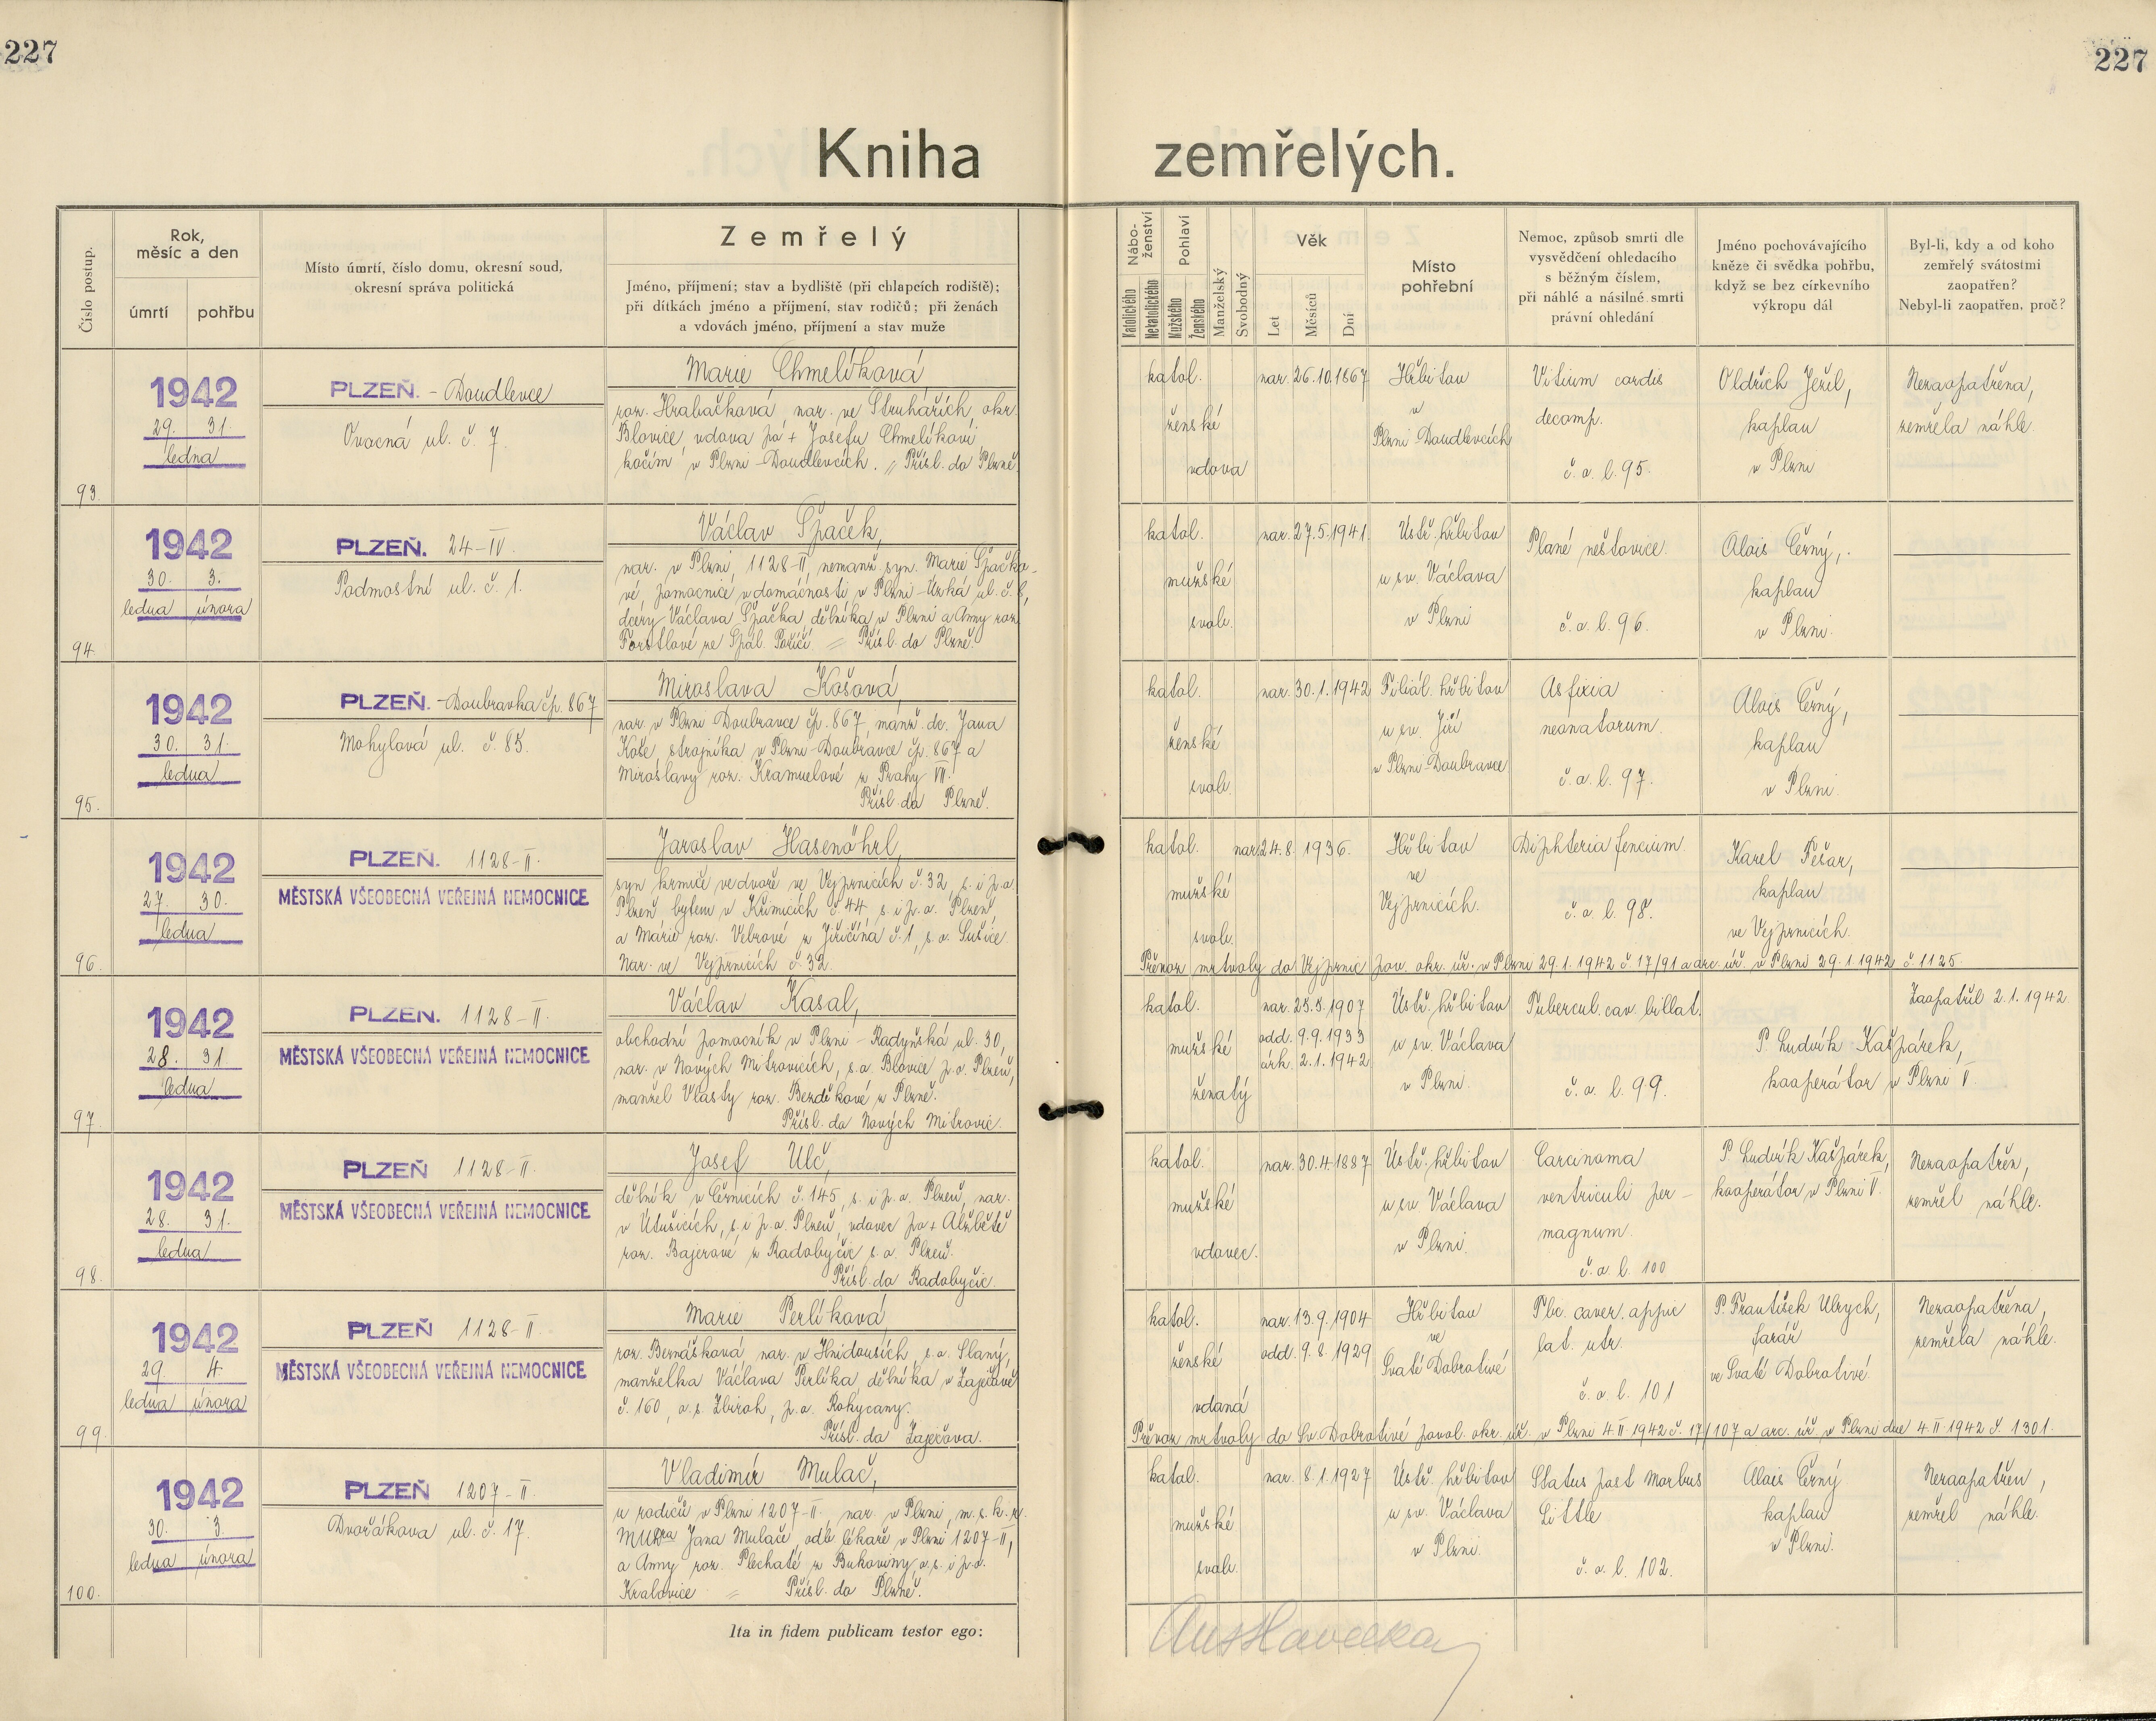 227
227
Kniha zemřelých.
Číslo postup.
Rok,
měsíc a den
úmrtí
pohřbu
Místo úmrtí, číslo domu, okresní soud,
okresní správa politická
Zemřelý
Jméno, příjmení; stav a bydliště (při chlapcích rodiště);
při dítkách jméno a příjmení, stav rodičů; při ženách
a vdovách jméno, příjmení a stav muže
Nábo-
ženství
Katolického
Nekatolického
Pohlaví
Mužského
Ženského
Manželský
Svobodný
Věk
Let
Měsíců
Dní
Místo
pohřební
Nemoc, způsob smrti dle
vysvědčení ohledacího
s běžným číslem,
při náhlé a násilné smrti
právní ohledání
Jméno pochovávajícího
kněze či svědka pohřbu,
když se bez církevního
výkropu dál
Byl-li, kdy a od koho
zemřelý svátostmi
zaopatřen?
Nebyl-li zaopatřen, proč?
93.
1942
29. 31.
ledna
PLZEŇ. - Doudlevce
Ovocná ul. č. 7.
Marie Chmelíková
roz. Hrabačková, nar. ve Struhařích, okr.
Blovice, vdova po + Josefu Chmelíkovi,
kočím v Plzni-Doudlevcích. // Přísl. do Plzně.
katol.
ženské
vdova
nar. 26.10.1867
Hřbitov
v
Plzni-Doudlevcích
Vitium cordis
decomp.
č. o. l. 95.
Oldřich Ješil,
kaplan
v Plzni
Nezaopatřena,
zemřela náhle.
94.
1942
30. 3.
ledna února
PLZEŇ. 24-IV.
Podmostní ul. č. 1.
Václav Špaček,
nar. v Plzni, 1128-II, nemanž. syn. Marie Špačko-
vé, pomocnice v domácnosti v Plzni-Úzká ul. č. 8,
dcery Václava Špačka, dělníka v Plzni a Anny roz.
Forstlové ze Spál. Poříčí = Přísl. do Plzně.
katol.
mužské
svob.
nar. 27.5.1941.
Ústř. hřbitov
u sv. Václava
v Plzni
Plané neštovice.
č. o. l. 96.
Alois Černý,
kaplan
v Plzni.
95.
1942
30. 31.
ledna
PLZEŇ. - Doubravka čp. 867
Mohylová ul. č. 85.
Miroslava Košová
nar. v Plzni Doubravce čp. 867, manž. dc. Jana
Koše, strojníka v Plzni-Doubravce čp. 867 a
Miroslavy roz. Kramuelové z Prahy VII.
Přísl. do Plzně.
katol.
ženské
svob.
nar. 30.1.1942
Filiál. hřbitov
u sv. Jiří
v Plzni-Doubravce
Asfixia
neonatorum.
č. o. l. 97.
Alois Černý,
kaplan
v Plzni.
96.
1942
27. 30.
ledna
PLZEŇ. 1128-II.
MĚSTSKÁ VŠEOBECNÁ VEŘEJNÁ NEMOCNICE
Jaroslav Hasenöhrl,
syn krmiče ve dvoře ve Vejprnicích č. 32, s. i p. o.
Plzeň bytem v Křimicích č. 44 s. i p. o. Plzeň,
a Marie roz. Vebrové z Jiřičína č. 1, s. o. Sušice.
Nar. ve Vejprnicích č. 32.
katol.
mužské
svob.
nar. 24.8. 1936.
Hřbitov
ve
Vejprnicích.
Diphteria fencium.
č. o. l. 98.
Karel Pešar,
kaplan
ve Vejprnicích.
Převoz mrtvoly do Vejprnic pov. okr. úř. v Plzni 29.1.1942 č. 17/91 a arc. úř. v Plzni 29.1.1942 č. 1125.
97.
1942
28. 31
ledna
PLZEŇ. 1128-II.
MĚSTSKÁ VŠEOBECNÁ VEŘEJNÁ NEMOCNICE
Václav Kasal,
obchodní pomocník v Plzni-Radyňská ul. 30,
nar. v Nových Mitrovicích, s. o. Blovice p. o. Plzeň,
manžel Vlasty roz. Bezděkové z Plzně.
Přísl. do Nových Mitrovic.
katol.
mužské
ženatý
nar. 25.8.1907
odd. 9.9.1933
círk. 2.1.1942
Ústř. hřbitov
u sv. Václava
v Plzni.
Tubercul. cav. billat.
č. o. l. 99.
P. Ludvík Kašpárek,
kooperátor v Plzni V.
Zaopatřil 2.1.1942.
98.
1942
28. 31.
ledna
PLZEŇ 1128-II.
MĚSTSKÁ VŠEOBECNÁ VEŘEJNÁ NEMOCNICE
Josef Ulč,
dělník v Černicích č. 145, s. i p. o. Plzeň, nar.
v Útušicích, s. i p. o. Plzeň, vdovec po + Alžbětě
roz. Bajerové z Radobyčic s. o. Plzeň.
Přísl. do Radobyčic.
katol.
mužské
vdovec.
nar. 30.4.1887
Ústř. hřbitov
u sv. Václava
v Plzni.
Carcinoma
ventriculi per-
magnum.
č. o. l. 100
P. Ludvík Kašpárek,
kooperátor v Plzni V.
Nezaopatřen,
zemřel náhle.
99.
1942
29. 4.
ledna února
PLZEŇ 1128-II
MĚSTSKÁ VŠEOBECNÁ VEŘEJNÁ NEMOCNICE
Marie Perlíková
roz. Bernášková nar. v Hnidousích, s. o. Slaný,
manželka Václava Perlíka, dělníka v Zaječově
č. 160, o. s. Zbiroh, p. o. Rokycany.
Přísl. do Zaječova.
katol.
ženské
vdaná
nar. 13.9.1904
odd. 9.8.1929
Hřbitov
ve
Svaté Dobrotivé
Tbc. caver. appic
lat. utr.
č. o. l. 101
P. František Ulrych,
farář
ve Svaté Dobrotivé
Nezaopatřena,
zemřela náhle.
Převoz mrtvoly do Sv. Dobrotivé povol. okr. úř. v Plzni 4.II 1942 č. 17/107 a arc. úř. v Plzni dne 4.II 1942 č. 1301.
100.
1942
30. 3.
ledna února
PLZEŇ 1207-II.
Dvořákova ul. č. 17.
Vladimír Mulač,
u rodičů v Plzni 1207-II, nar. v Plzni, m. s. k. r.
MUDra Jana Mulače, odb. lékaře v Plzni 1207-II,
a Anny roz. Plechaté z Bukoviny, o. s. i p. o.
Kralovice = Přísl. do Plzně.
katol.
mužské
svob.
nar. 8.1.1927
Ústř. hřbitov
u sv. Václava
v Plzni.
Status post Morbus
Little
č. o. l. 102.
Alois Černý
kaplan
v Plzni.
Nezaopatřen,
zemřel náhle.
Ita in fidem publicam testor ego: